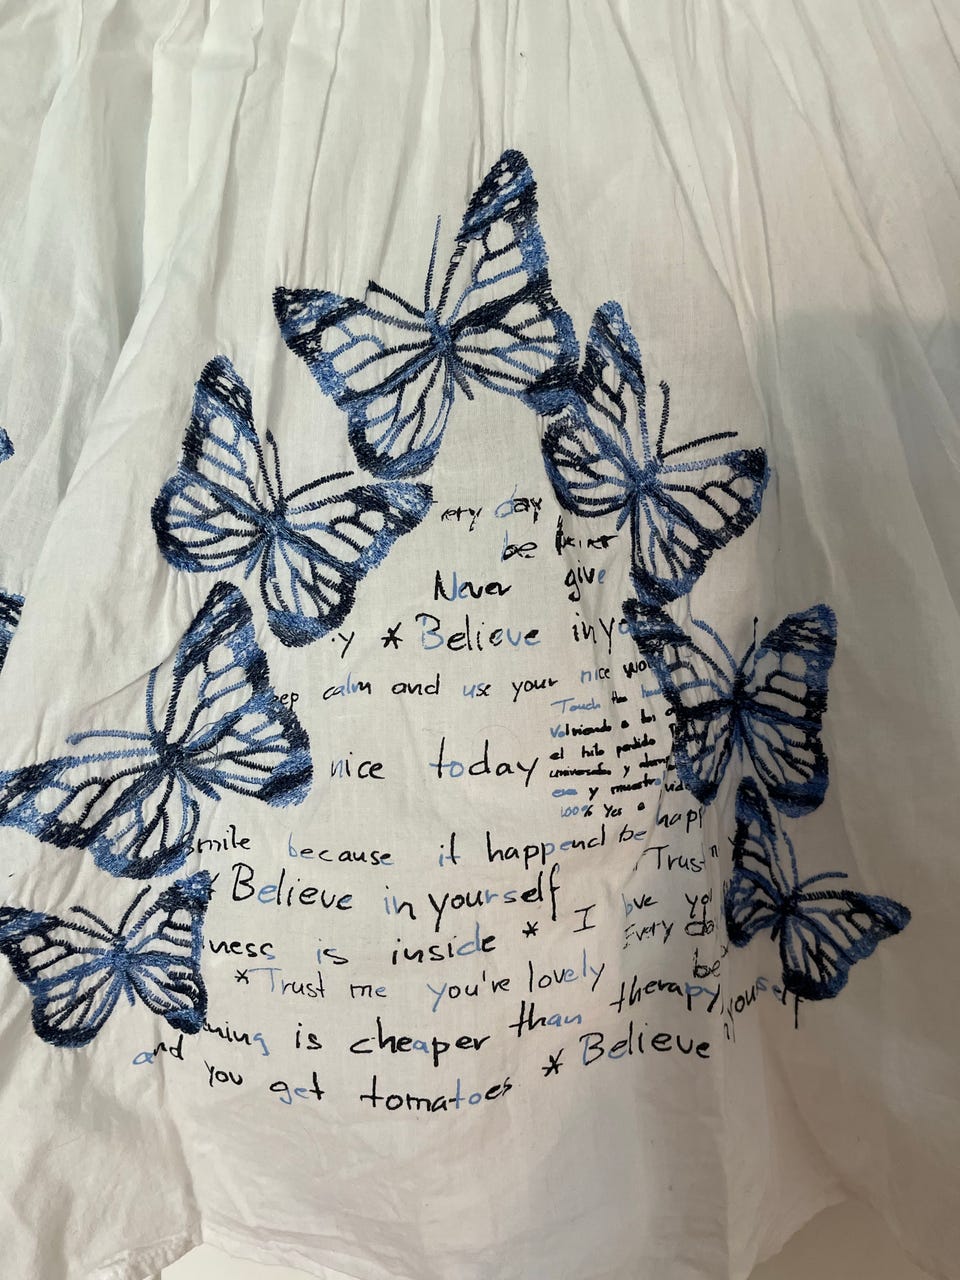 ery day
be
Never give
y * Believe in yo
eep calm and use your nice wo
Touch the
Volviendo a los
nice today
el hilo perdido
universales y
y muestra
100% Yes
smile because it happend be happ
Trust m
* Believe in yourself
I ove you
ness is inside *
Every da
* Trust me you're lovely
be
ning is cheaper than therapy
yourself
and you get tomatoes * Believe